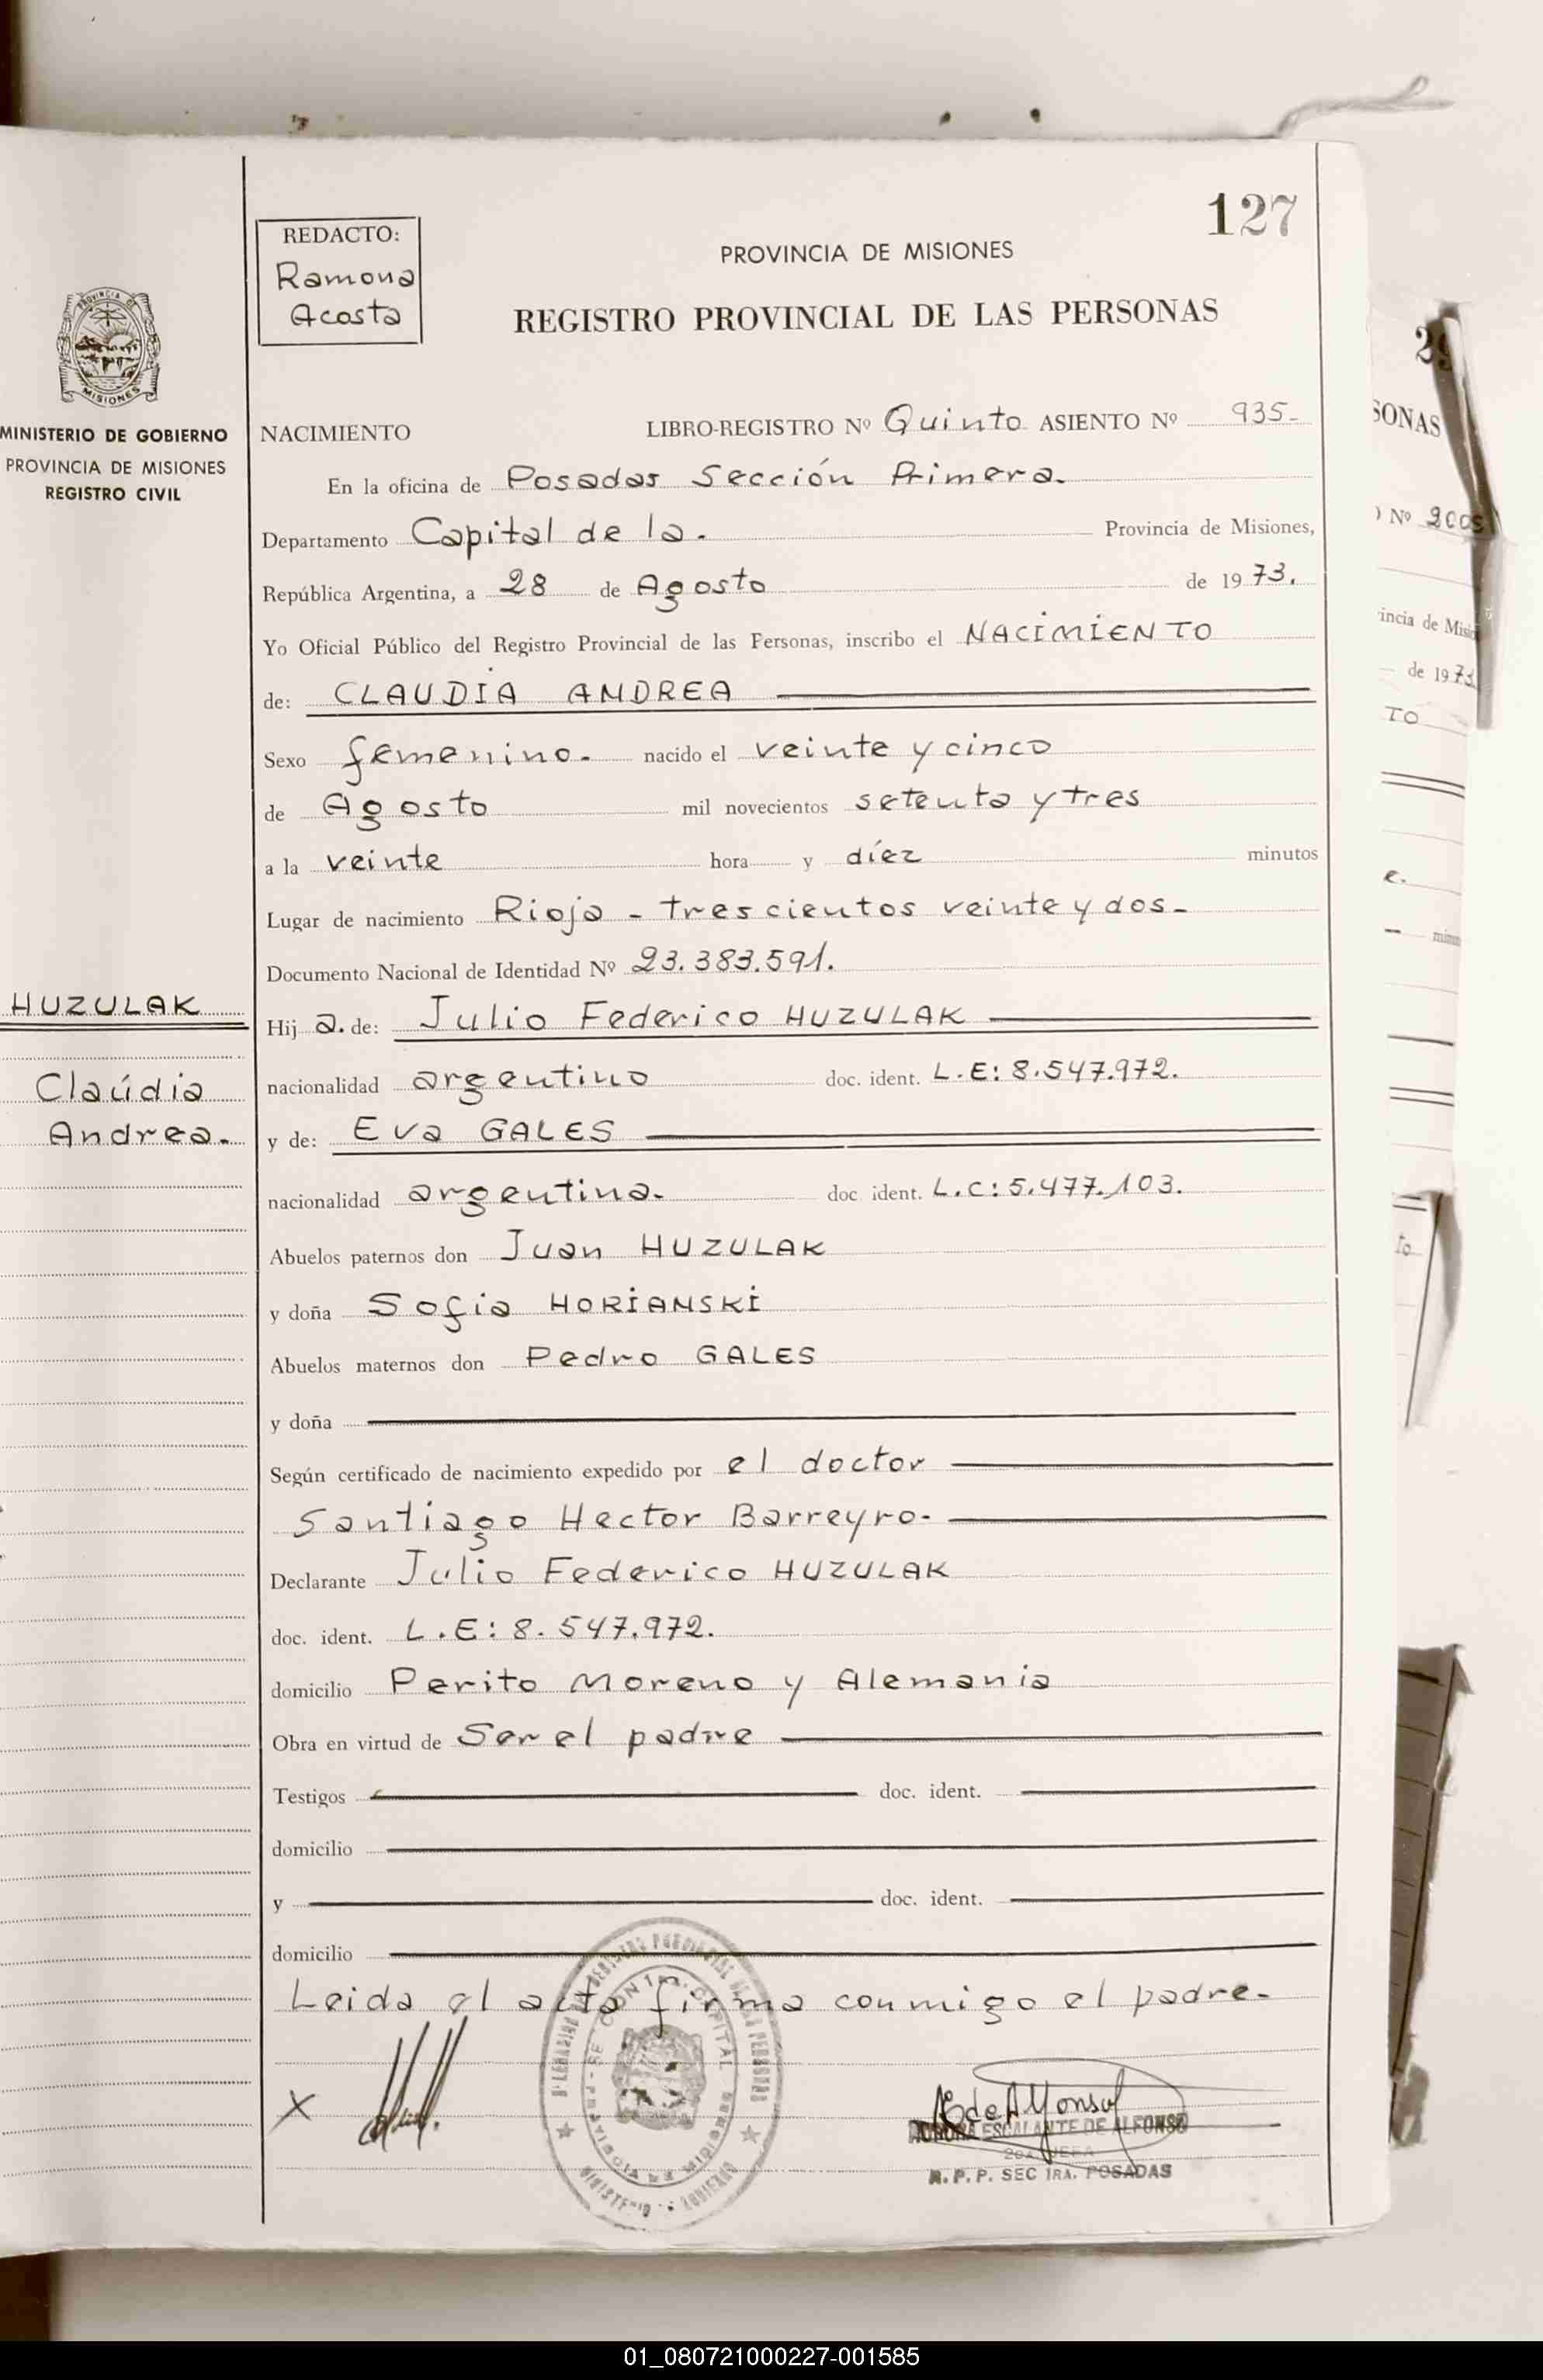 127
REDACTO:
Ramona
Acosta
PROVINCIA DE MISIONES
REGISTRO PROVINCIAL DE LAS PERSONAS
PROVINCIA DE
MISIONES
MINISTERIO DE GOBIERNO
PROVINCIA DE MISIONES
REGISTRO CIVIL
NACIMIENTO LIBRO-REGISTRO Nº Quinto ASIENTO Nº 935-
En la oficina de Posadas Sección Primera.
Departamento Capital de la. Provincia de Misiones,
República Argentina, a 28 de Agosto de 1973.
Yo Oficial Público del Registro Provincial de las Personas, inscribo el NACIMIENTO
de: CLAUDIA ANDREA
Sexo femenino. nacido el veinte y cinco
de Agosto mil novecientos setenta y tres
a la veinte hora y díez minutos
Lugar de nacimiento Rioja - trescientos veinte y dos-
Documento Nacional de Identidad Nº 23.383.591.
HUZULAK
Claúdia
Andrea.
Hij a. de: Julio Federico HUZULAK
nacionalidad argentino doc. ident. L.E: 8.547.972.
y de: Eva GALES
nacionalidad argentina. doc ident. L.C: 5.477.103.
Abuelos paternos don Juan HUZULAK
y doña Sofia HORIANSKI
Abuelos maternos don Pedro GALES
y doña
Según certificado de nacimiento expedido por el doctor
Santiago Hector Barreyro.
Declarante Julio Federico HUZULAK
doc. ident. L.E: 8.547.972.
domicilio Perito Moreno y Alemania
Obra en virtud de Ser el padre
Testigos doc. ident.
domicilio
y doc. ident.
domicilio
Leida el acta firma conmigo el padre.
X
ESCALANTE DE ALFONSO
R.P.P. SEC 1RA. POSADAS
SONAS
Nº 2005
incia de Misio
de 1973
TO
01_080721000227-001585